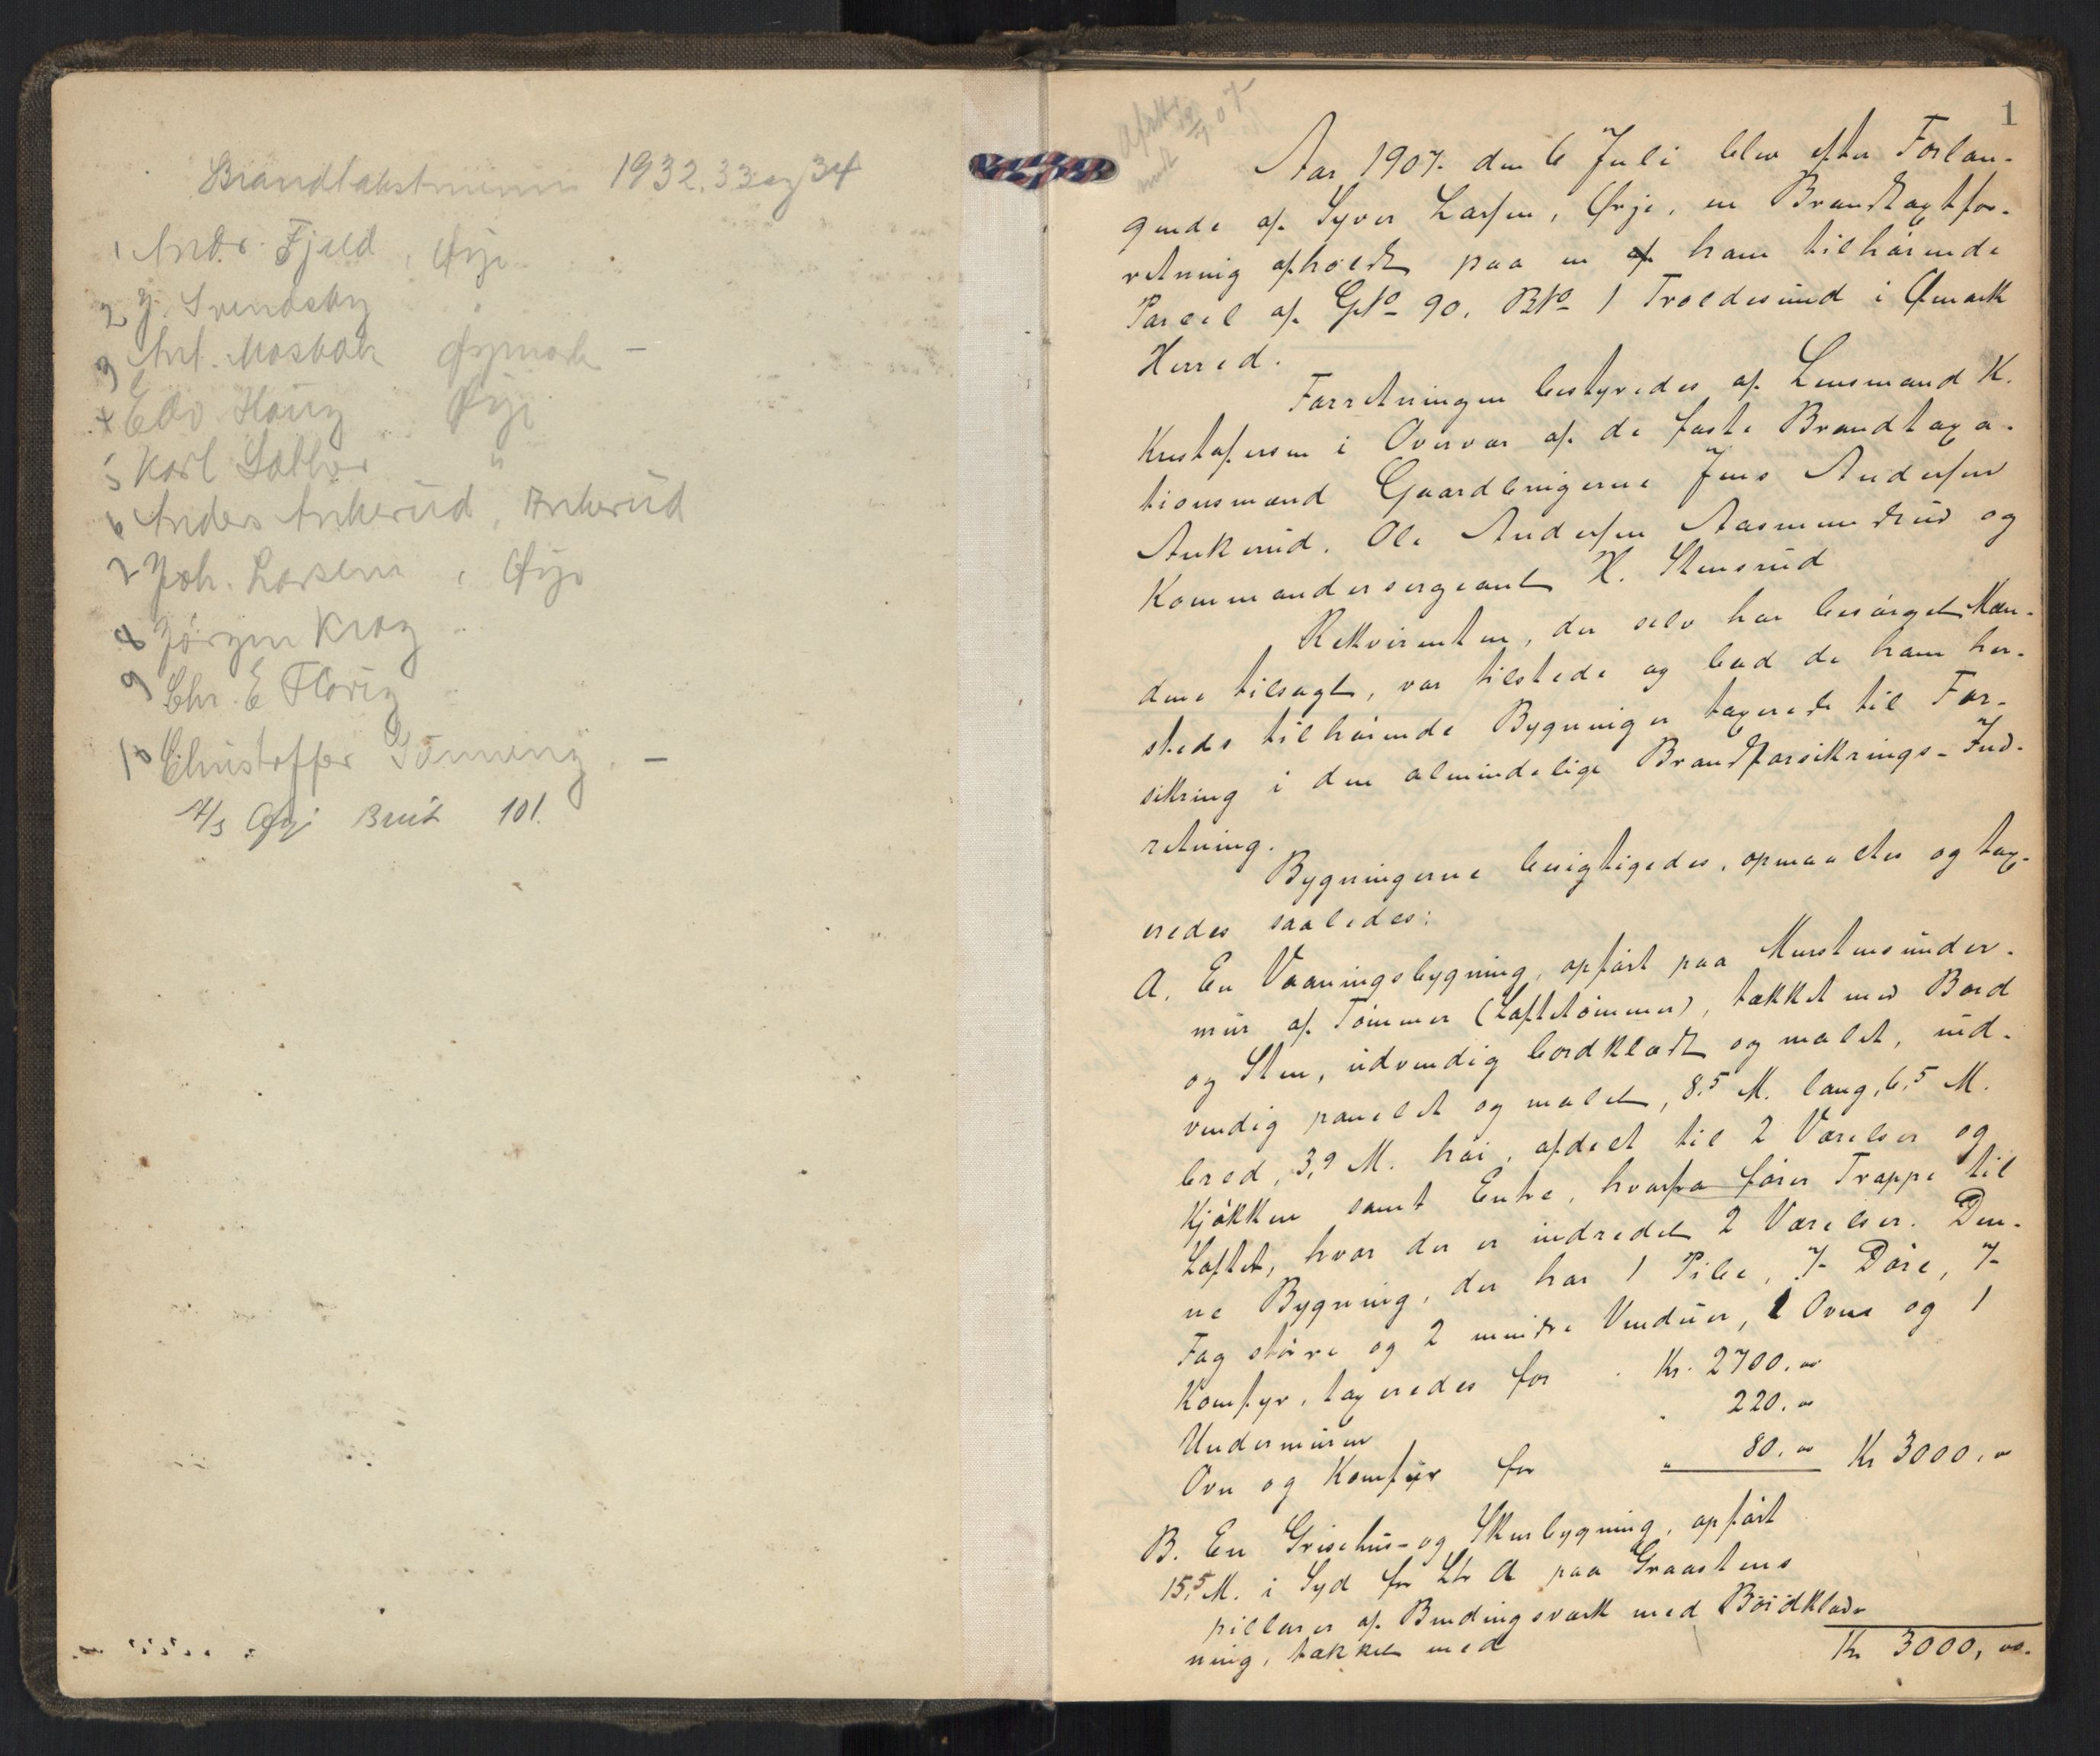 Brandtakstmenn 1932. 33 og 34
1 Andr. Fjeld, Ørje
2 J. Svendsby "
3 Ant. Mosbæk Øymark –
4 Edv Haug Ørje
5 Karl Labbo "
6 Anders Ankerud, Ankerud
7 Joh. Larsen, Ørje
8 Jörgen Krog
9 Chr. E Florig
10 Christoffer Tömmeng. –
A/S Ørje Bruk 101.
1
Aar 1907. den 6 Juli blev efter Forlan-
gende af Syver Larsen, Ørje, en Brandtaxtfor-
retning afholdt paa en af ham tilhørende
Parcel af Gno 90, Bno 1 Troldesund i Ømark
Herred.
Forretningen bestyredes af Lensmand K.
Kristofersen i Overvær af de faste Brandtaxa-
tionsmænd Gaardbrugerne Jens Andersen
Ankerud, Ole Andersen Aasmundrud og
Kommandersergeant H. Stensrud
Rekvirenten, der selv har besørget Mæn-
dene tilsagt, var tilstede og bad de ham her-
steds tilhørende Bygninger taxerede til For-
sikring i den almindelige Brandforsikrings-Ind-
retning.
Bygningerne besigtigedes, opmaaltes og tax-
eredes saaledes:
A. En Vaaningsbygning, opført paa Murstensunder-
mur af Tømmer (Laftetømmer), tækket med Bord
og Sten, udvendig bordklædt og malet, ind-
vendig panelet og malet, 8,5 M. lang, 6,5 M.
bred, 3,9 M. høi, afdelt til 2 Værelser og
Kjøkken samt Entre, hvorfra fører Trappe til
Loftet, hvor der er indredet 2 Værelser. Den-
ne Bygning, der har 1 Pibe, 7 Døre, 7
Fag større og 2 mindre Vinduer, 1 Ovne og 1
Komfyr, taxeredes for . Kr. 2700.00
Undermuren . 220.00
Ovn og Komfyr for " 80.00 Kr 3000,00
B. En Grisehus- og Skurbygning, opført
15,5 M. i Syd for Ltr A paa Graastens
pillarer af Bindingsværk med Bordklæd-
ning, tækket med
Kr 3000,00.